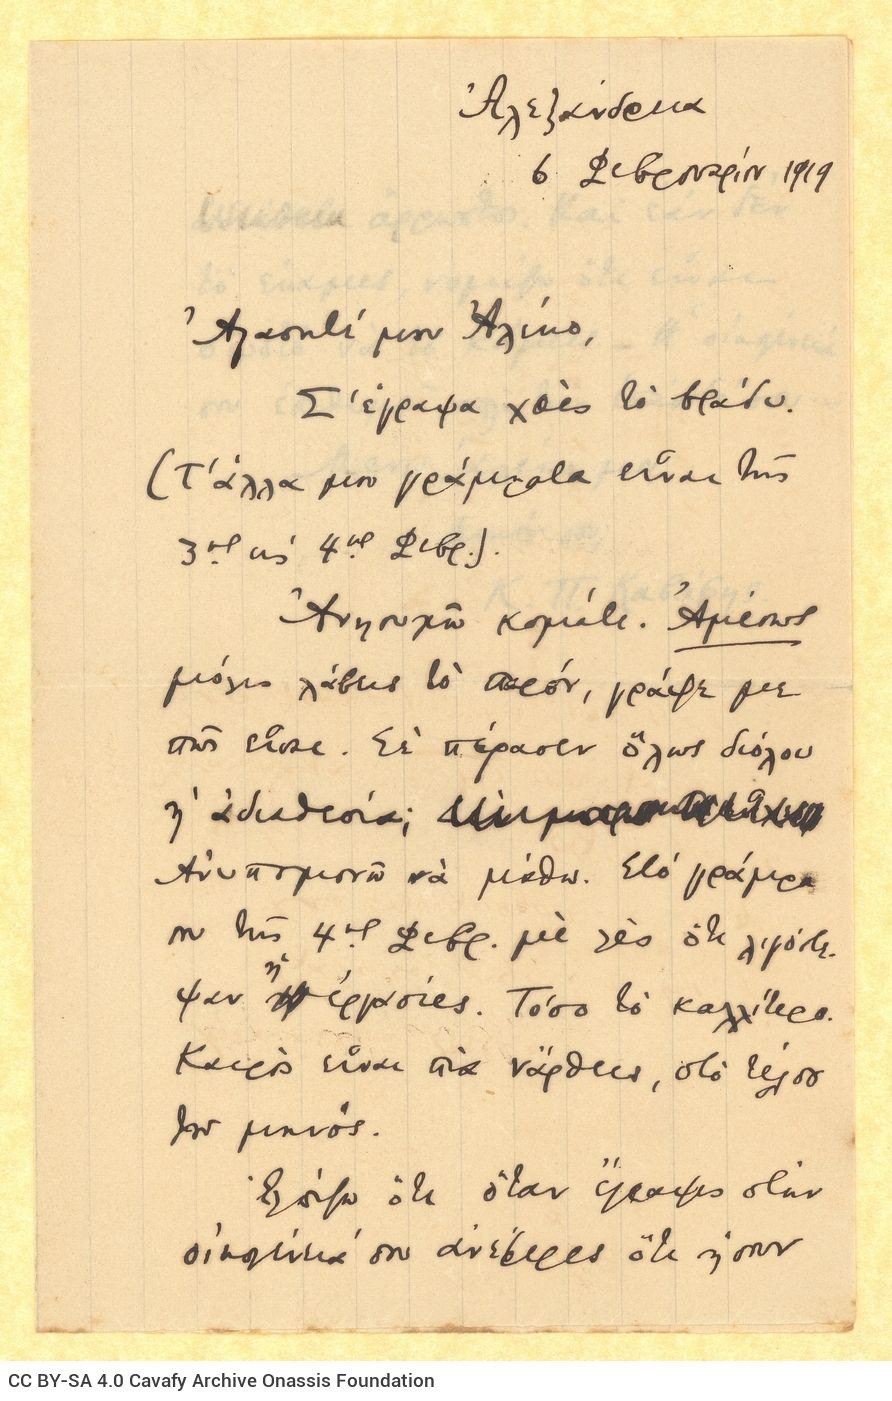 Ἀλεξάνδρεια
6 Φεβρουαρίου 1919
Ἀγαπητέ μου Ἀλέκο,
Σ' ἔγραψα χθὲς τὸ βράδυ.
(Τ' ἄλλα μου γράμματα εἶναι τῆς
3ης κ' 4ης Φεβρ.).
Ἀνησυχῶ κομάτι. Ἀμέσως
μόλις λάβεις τὸ παρόν, γράψε με
πῶς εἶσαι. Σὲ πέρασεν ὅλως διόλου
ἡ ἀδιαθεσία;
Ἀνυπομονῶ νὰ μάθω. Στὸ γράμμα
σου τῆς 4ης Φεβρ. μὲ λὲς ὅτι λιγόστε-
ψαν ἡ ἐργασίες. Τόσο τὸ καλλίτερο.
Καιρὸς εἶναι πιὰ νἄρθεις, στὸ τέλος
τοῦ μηνός.
Ἐλπίζω ὅτι ὅταν ἔγραψες στὴν
οἰκογένειά σου ἀνέφερες ὅτι ἤσουν
CC BY-SA 4.0 Cavafy Archive Onassis Foundation